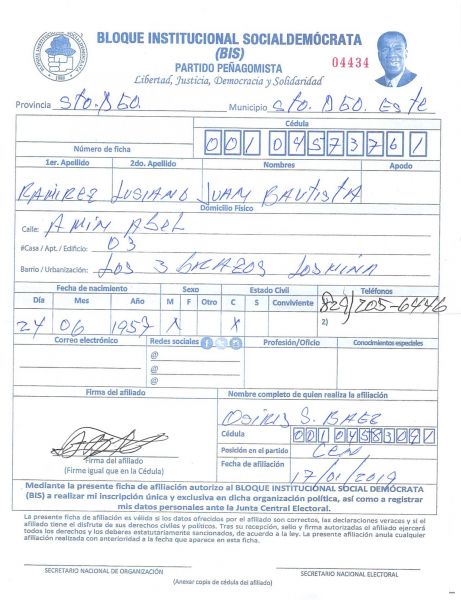 BLOQUE INSTITUCIONAL SOCIALDEMÓCRATA
(BIS)
PARTIDO PEÑAGOMISTA
04434
Libertad, Justicia, Democracia y Solidaridad
Provincia Sto. Dgo. Municipio Sto. Dgo. Este
Cédula
Número de ficha 00104573761
1er. Apellido 2do. Apellido Nombres Apodo
Ramirez Lusiano Juan Bautista
Domicilio Físico
Calle: Amin Abel
#Casa / Apt. / Edificio: 03
Barrio / Urbanización: Los 3 Brazos Losmina
Fecha de nacimiento Sexo Estado Civil Teléfonos
Día Mes Año M F Otro C S Conviviente 829/205-6446
24 06 1957 X X 2)
Correo electrónico Redes sociales Profesión/Oficio Conocimientos especiales
@
@
@
Firma del afiliado Nombre completo de quien realiza la afiliación
Osiris S. Baez
Cédula 00104583091
Posición en el partido CEN
Fecha de afiliación 17/01/2019
Firma del afiliado
(Firme igual que en la Cédula)
Mediante la presente ficha de afiliación autorizo al BLOQUE INSTITUCIONAL SOCIAL DEMÓCRATA
(BIS) a realizar mi inscripción única y exclusiva en dicha organización política, así como a registrar
mis datos personales ante la Junta Central Electoral.
La presente ficha de afiliación es válida si los datos ofrecidos por el afiliado son correctos, las declaraciones veraces y si el
afiliado tiene el disfrute de sus derechos civiles y políticos. Tras su recepción, sello y firma autorizadas el afiliado ejercerá
todos los derechos y los deberes estatutariamente sancionados, de acuerdo a la ley. La presente afiliación anula cualquier
afiliación realizada con anterioridad a la fecha que aparece en esta ficha.
SECRETARIO NACIONAL DE ORGANIZACIÓN SECRETARIO NACIONAL ELECTORAL
(Anexar copis de cédula del afiliado)